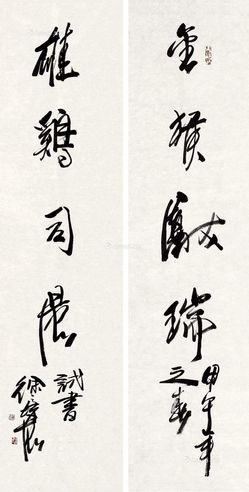 金猴獻瑞
甲午年
之春
雄鷄司晨
試書
徐